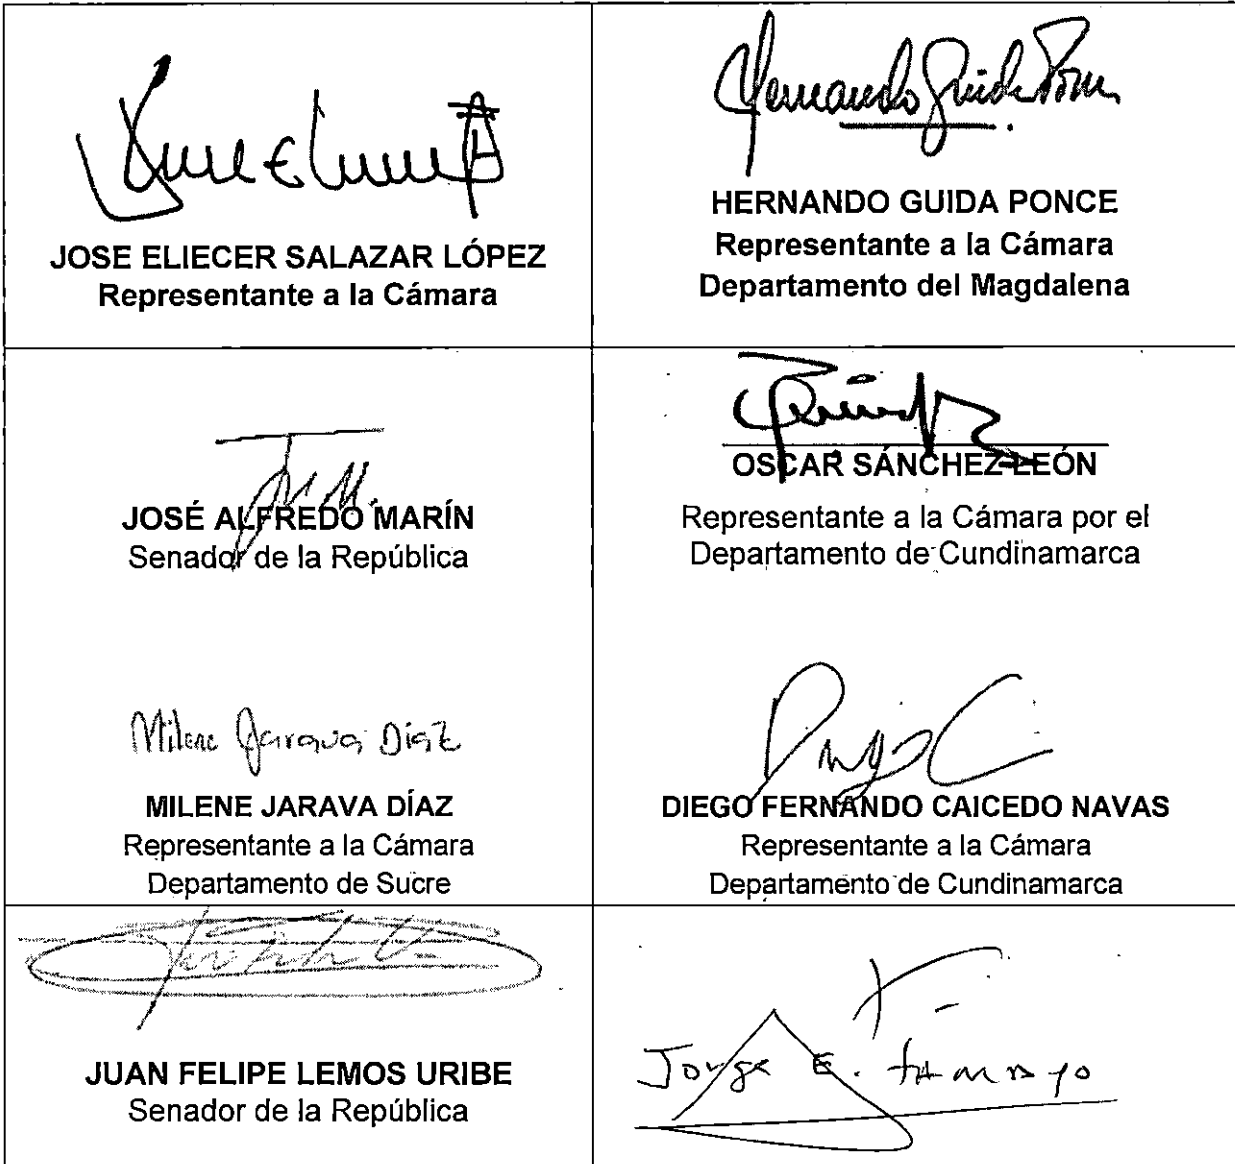 JOSE ELIECER SALAZAR LÓPEZ
Representante a la Cámara
Hernando Guida Ponce
HERNANDO GUIDA PONCE
Representante a la Cámara
Departamento del Magdalena
JOSÉ ALFREDO MARÍN
Senador de la República
OSCAR SÁNCHEZ LEÓN
Representante a la Cámara por el
Departamento de Cundinamarca
Milene Jarava Diaz
MILENE JARAVA DÍAZ
Representante a la Cámara
Departamento de Sucre
Diego C
DIEGO FERNANDO CAICEDO NAVAS
Representante a la Cámara
Departamento de Cundinamarca
JUAN FELIPE LEMOS URIBE
Senador de la República
Jorge E. Tamayo